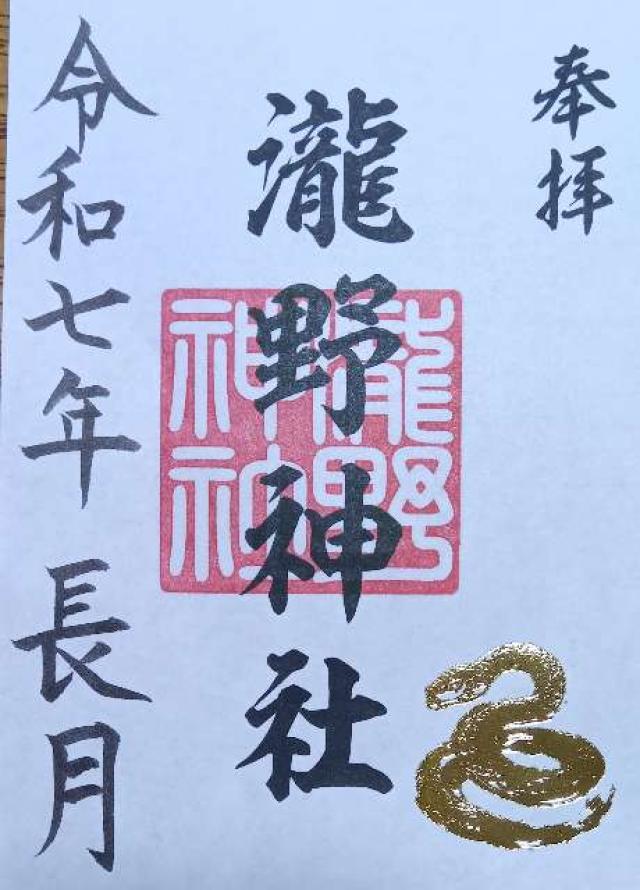 奉拝
瀧野神社
瀧野
神社
令和七年 長月